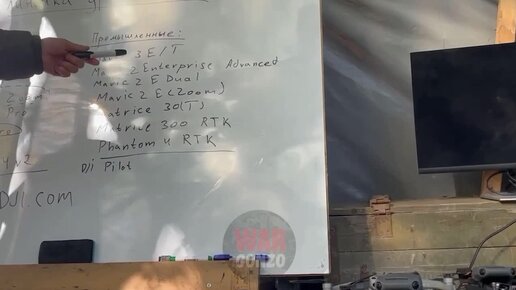 Промышленные:
3 E/T
2 Enterprise Advanced
Mavic 2 E Dual
Mavic 2 E (Zoom)
Matrice 30(T)
Matrice 300 RTK
Phantom 4 RTK
Dji Pilot
DJI.COM
WAR
GONZO